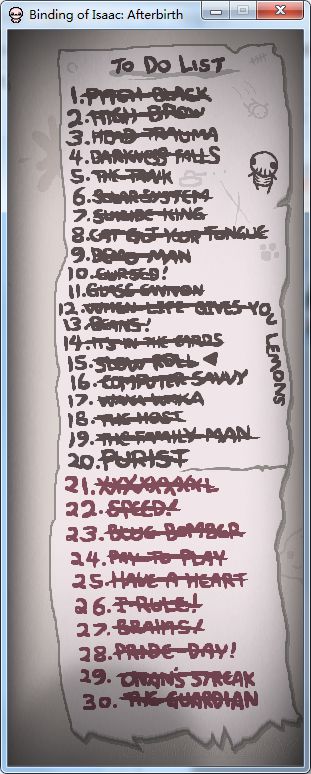 Binding of Isaac: Afterbirth
TO DO LIST
1. PITCH BLACK
2. HIGH BROW
3. HEAD TRAUMA
4. DARKNESS FALLS
5. THE TANK
6. SOLAR SYSTEM
7. SUICIDE KING
8. CAT GOT YOUR TONGUE
9. DEMO MAN
10. CURSED!
11. GLASS CANNON
12. WHEN LIFE GIVES YOU LEMONS
13. BEANS!
14. ITS IN THE CARDS
15. SLOW ROLL
16. COMPUTER SAVVY
17. WAKA WAKA
18. THE HOST
19. THE FAMILY MAN
20. PURIST
21. XXXXXXXXL
22. SPEED!
23. BLUE BOMBER
24. PAY TO PLAY
25. HAVE A HEART
26. I RULE!
27. BRAINS!
28. PRIDE DAY!
29. ONAN'S STREAK
30. THE GUARDIAN